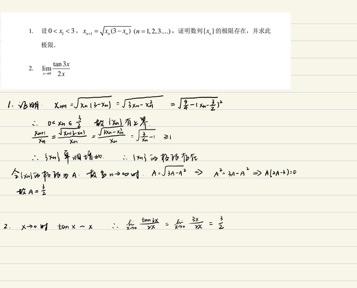 1. 设0<x₁<3，xₙ₊₁=√(xₙ(3−xₙ)) (n=1,2,3...)，证明数列{xₙ}的极限存在，并求此
极限.
2. lim_{x→0} tan3x / 2x
1. 证明 xₙ₊₁=√(xₙ(3−xₙ)) = √(3xₙ−xₙ²) = √(9/4−(xₙ−3/2)²)
∴ 0<xₙ≤3/2 故{xₙ}有上界
xₙ₊₁/xₙ = √(xₙ(3−xₙ))/xₙ = √(3xₙ−xₙ²)/xₙ = √(3/xₙ−1) ≥1
∴ {xₙ}单调增加 ∴ {xₙ}的极限存在
令{xₙ}的极限为A 故当n→∞时 A=√(3A−A²) ⇒ A²=3A−A² ⇒ A(2A−3)=0
故A=3/2
2. x→0时 tanx~x ∴ lim_{x→0} tan3x/2x = lim_{x→0} 3x/2x = 3/2